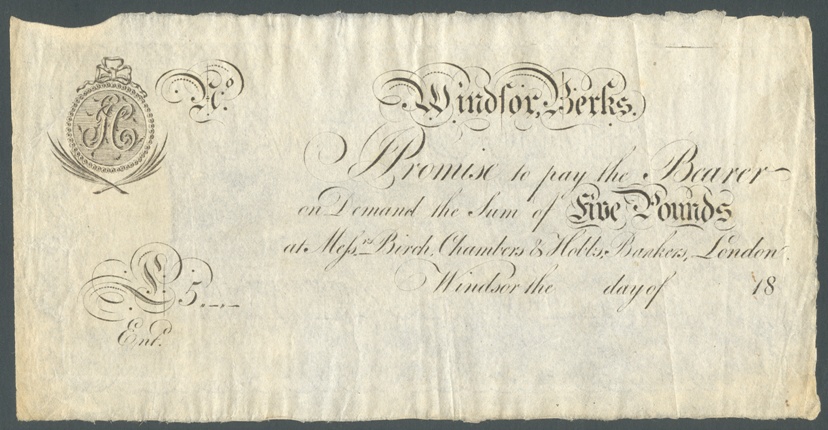 No.
Windsor, Berks.
I Promise to pay the Bearer
on Demand the Sum of Five Pounds
at Messrs. Birch, Chambers & Hobbs, Bankers, London.
Windsor the day of 18
£5.-.-
Entd.